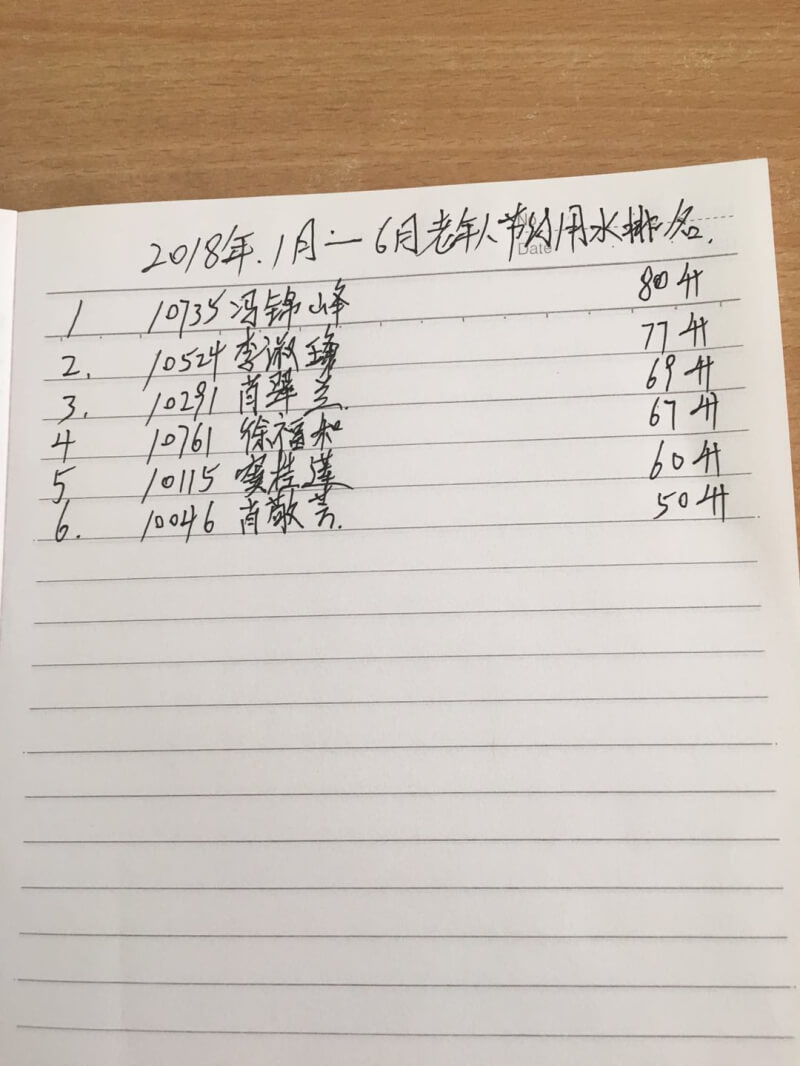 No
Date
2018年.1月 — 6月老年人节约用水排名.
1 10735 冯锦峰 80升
2. 10524 李淑 77升
3. 10291 肖翠兰. 69升
4 10761 徐福和 67升
5 10115 窦桂莲 60升
6. 10046 肖敬芸. 50升